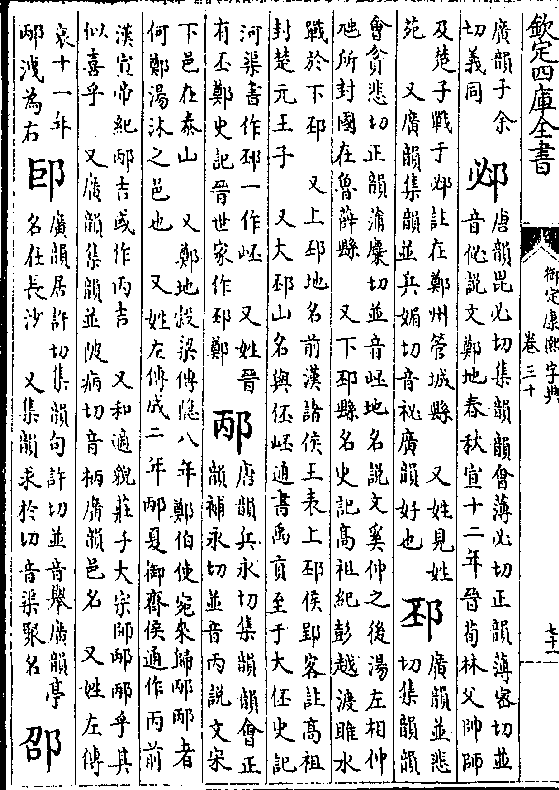 欽定四庫全書
御定康熙字典
卷三十
廣韻子余切義同
邲
唐韻毘必切集韻韻會薄必切正韻薄密切並音佖說文鄭地春秋宣十二年晉荀林父帥師
及楚子戰于邲註在鄭州管城縣 又姓見姓苑 又廣韻集韻並兵媚切音祕廣韻好也
邳
廣韻並悲切集韻韻
會貧悲切正韻蒲麋切並音岯地名說文奚仲之後湯左相仲虺所封國在魯薛縣 又下邳縣名史記高祖紀彭越渡睢水
戰於下邳 又上邳地名前漢諸侯王表上邳侯郢客註高祖封楚元王子 又大邳山名與伾岯通書禹貢至于大伾史記
河渠書作邳一作岯 又姓晉有丕鄭史記晉世家作邳鄭
邴
唐韻兵永切集韻韻會正韻補永切並音丙說文宋
下邑在泰山 又鄭地穀梁傳隱八年鄭伯使宛來歸邴邴者何鄭湯沐之邑也 又姓左傳成二年邴夏御齊侯通作丙前
漢宣帝紀邴吉或作丙吉 又和適貌莊子大宗師邴邴乎其似喜乎 又廣韻集韻並陂病切音柄廣韻邑名 又姓左傳
哀十一年邴洩為右
䢹
廣韻居許切集韻苟許切並音舉廣韻亭名在長沙 又集韻求於切音渠聚名
邵